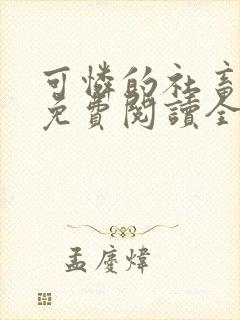 可憐的社畜
免費閱讀全
孟慶煒